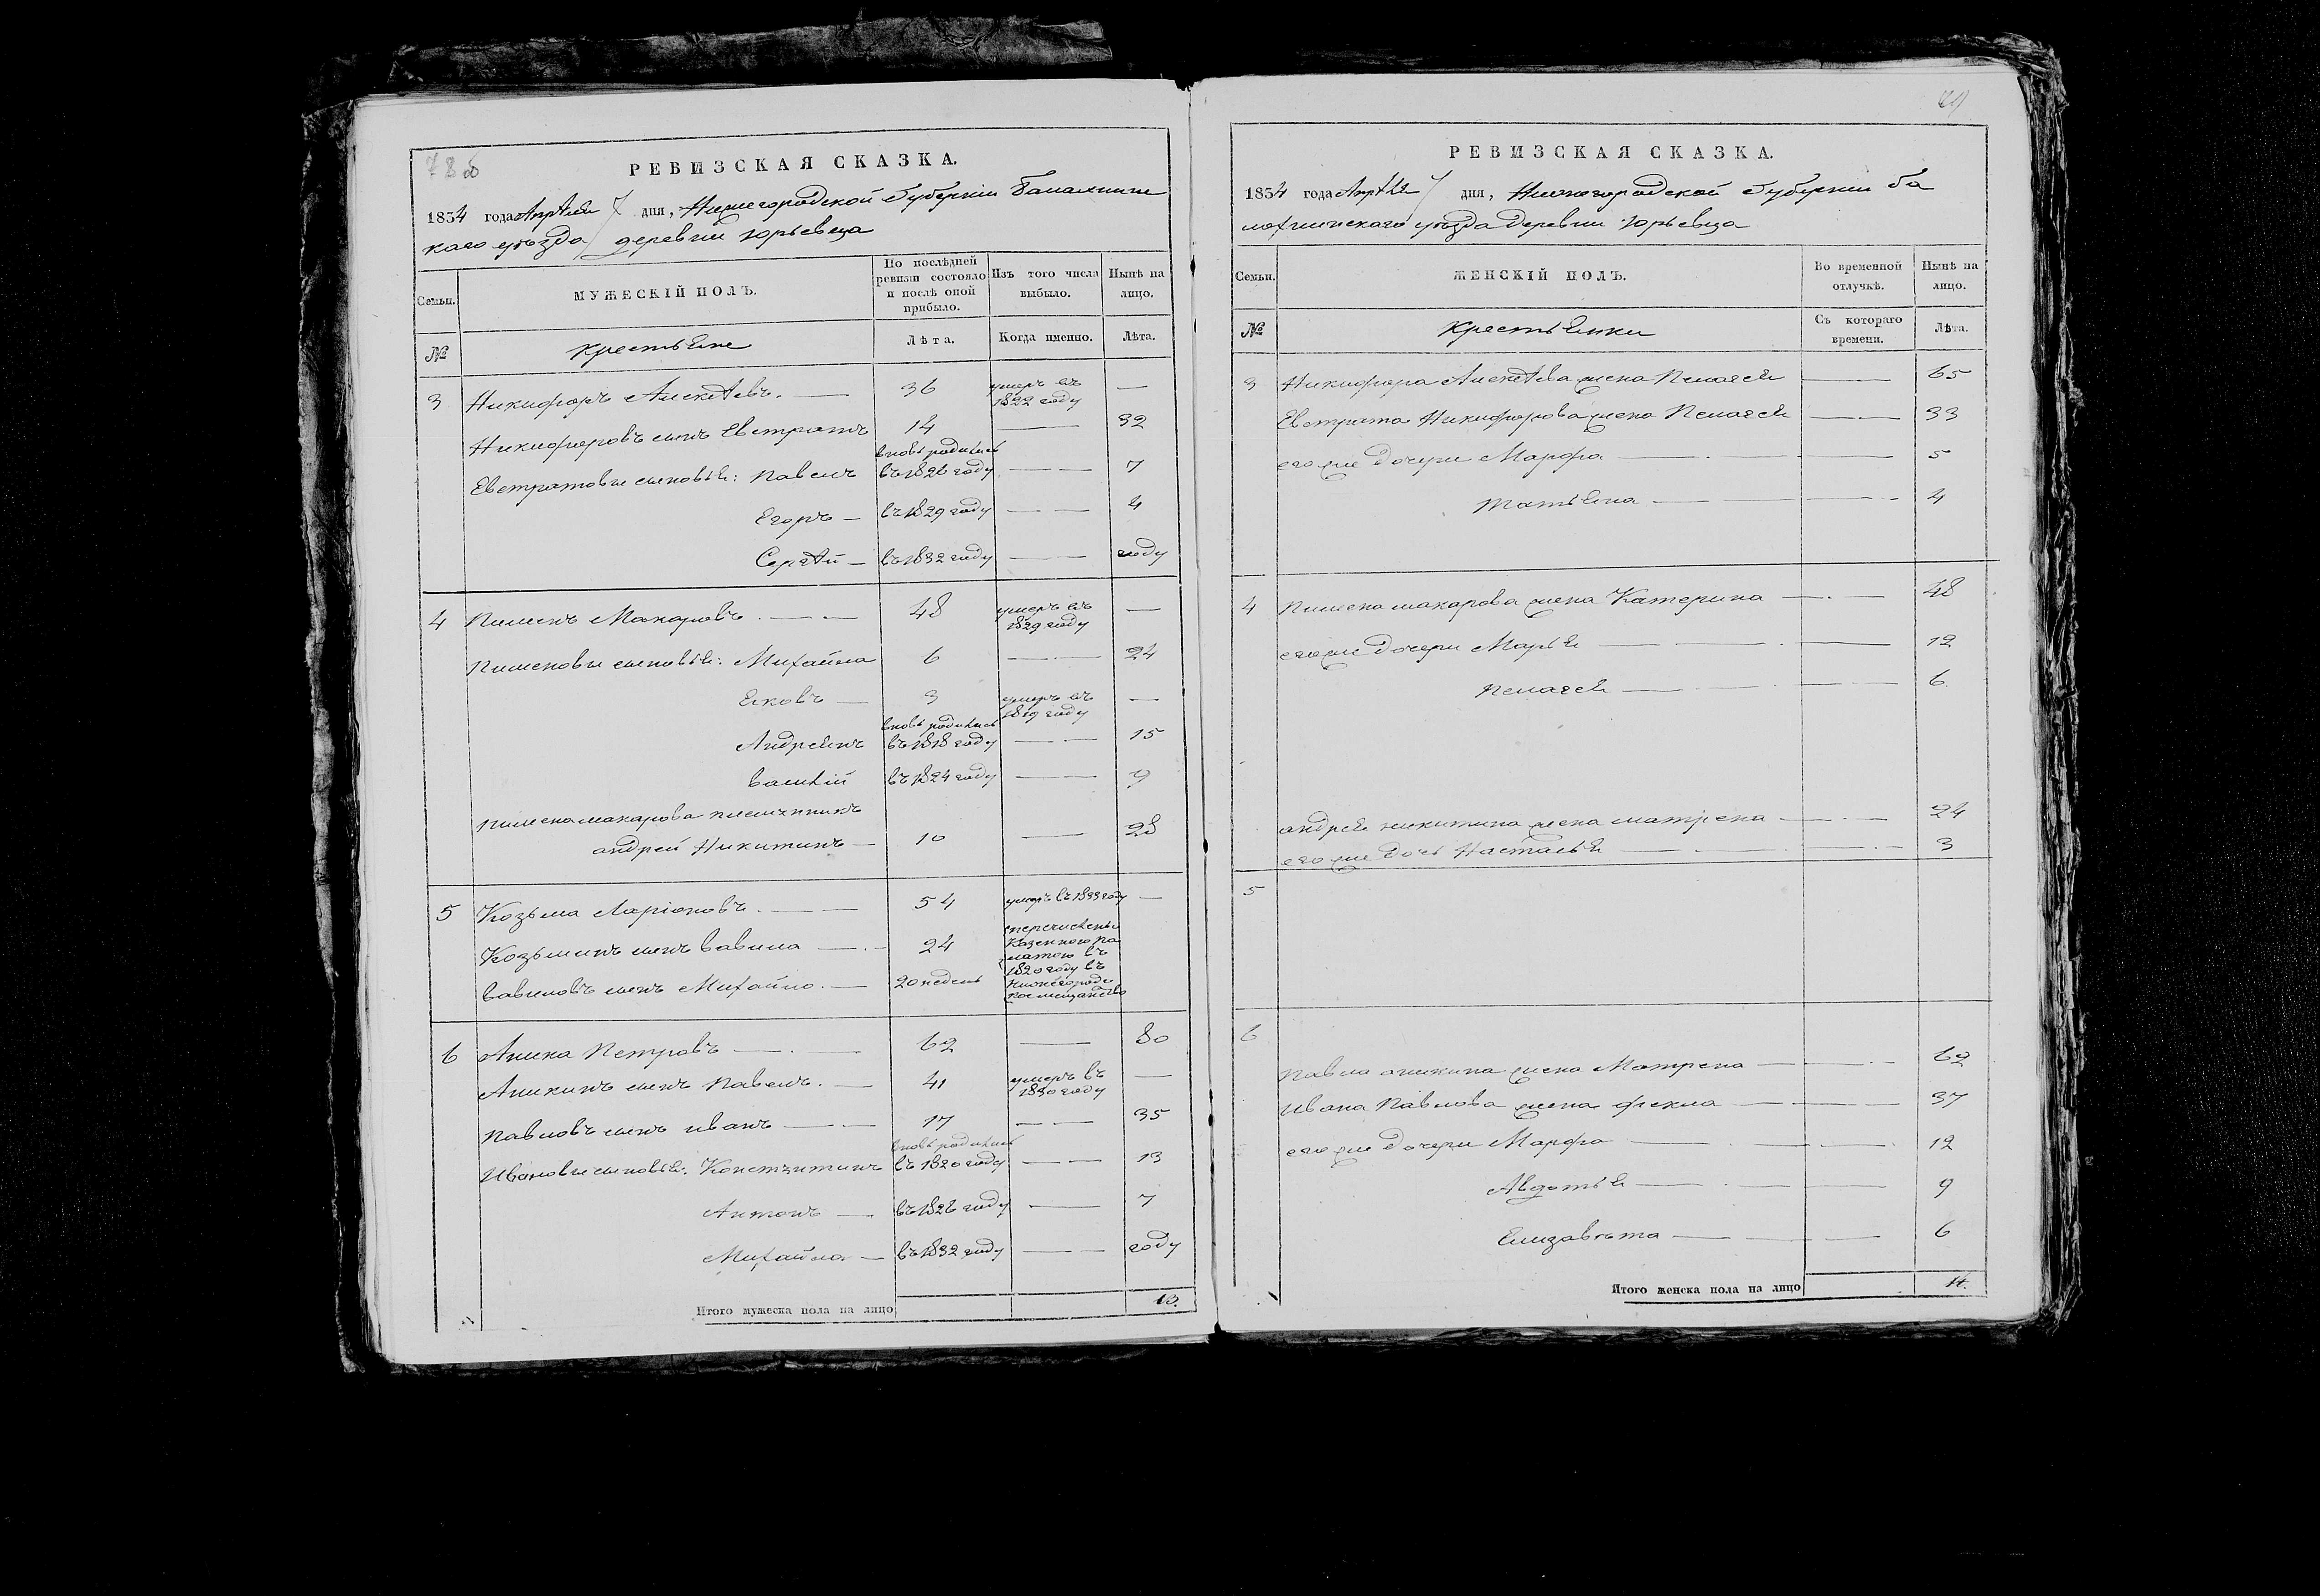 78 об
РЕВИЗСКАЯ СКАЗКА.
1834 года Апрѣля 7 дня, Нижегородской Губерніи Балахнинс
каго уѣзда деревни Юрьевца
Семьи. МУЖЕСКІЙ ПОЛЪ. По послѣдней ревизіи состояло и послѣ оной прибыло. Изъ того числа выбыло. Нынѣ на лицо.
№ Крестьяне Лѣта. Когда именно. Лѣта.
3 Никифоръ Алексѣевъ. — 36 умеръ въ 1822 году —
Никифоровъ сынъ Евстратъ 14 — 32
Евстратовы сыновья: Павелъ вновь родились въ 1826 году — 7
Егоръ — въ 1829 году — 4
Сергѣй — въ 1832 году — году
4 Пименъ Макаровъ. — 48 умеръ въ 1829 году —
Пименовы сыновья: Михайла 6 — 24
Яковъ — 3 умеръ въ 1819 году —
вновь родились
Андреянъ въ 1818 году — 15
Василій въ 1824 году — 9
Пимена макарова племянникъ
андрей Никитинъ — 10 — 28
5 Козьма Ларіоновъ. — 54 умеръ въ 1833 году —
Козьминъ сынъ Вавила — 24 перечислены Казенною Па латою въ 1820 году въ
Вавиловъ сынъ Михайло. — 20 недель
6 Аника Петровъ — 62 — 80
Аникинъ сынъ Павелъ. — 41 умеръ въ 1830 году —
Павловъ сынъ иванъ — 17 — 35
вновь родились
Ивановы сыновья: Констянтинъ въ 1820 году — 13
Антонъ — въ 1826 году — 7
Михайла — въ 1832 году — году
Итого мужеска пола на лицо 13.
79
РЕВИЗСКАЯ СКАЗКА.
1834 года Апрѣля 7 дня, Нижегородской Губерніи Ба
лахнинскаго уѣзда деревни Юрьевца
Семьи. ЖЕНСКІЙ ПОЛЪ. Во временной отлучкѣ. Нынѣ на лицо.
№ Крестьянки Съ котораго времени. Лѣта.
3 Никифора Алексѣева жена Пелагея — 65
Евстрата Никифорова жена Пелагея — 33
его же дочери Марфа — 5
Татьяна — 4
4 Пимена макарова жена Катерина — 48
его же дочери Марья — 12
Пелагея — 6
андрея никитина жена матрена — 24
его же дочь Настасья — 3
5
6
Павла аникина жена Матрена — 62
Ивана Павлова жена фекла — 37
его же дочери Марфа — 12
Авдотья — 9
Елизавѣта — 6
Итого женска пола на лицо 14.